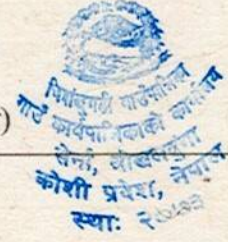 )
चिशंखुगढी गाउँपालिका
गाउँ कार्यपालिकाको कार्यालय
ओखलढुङ्गा
कोशी प्रदेश, नेपाल
स्था: २०७३